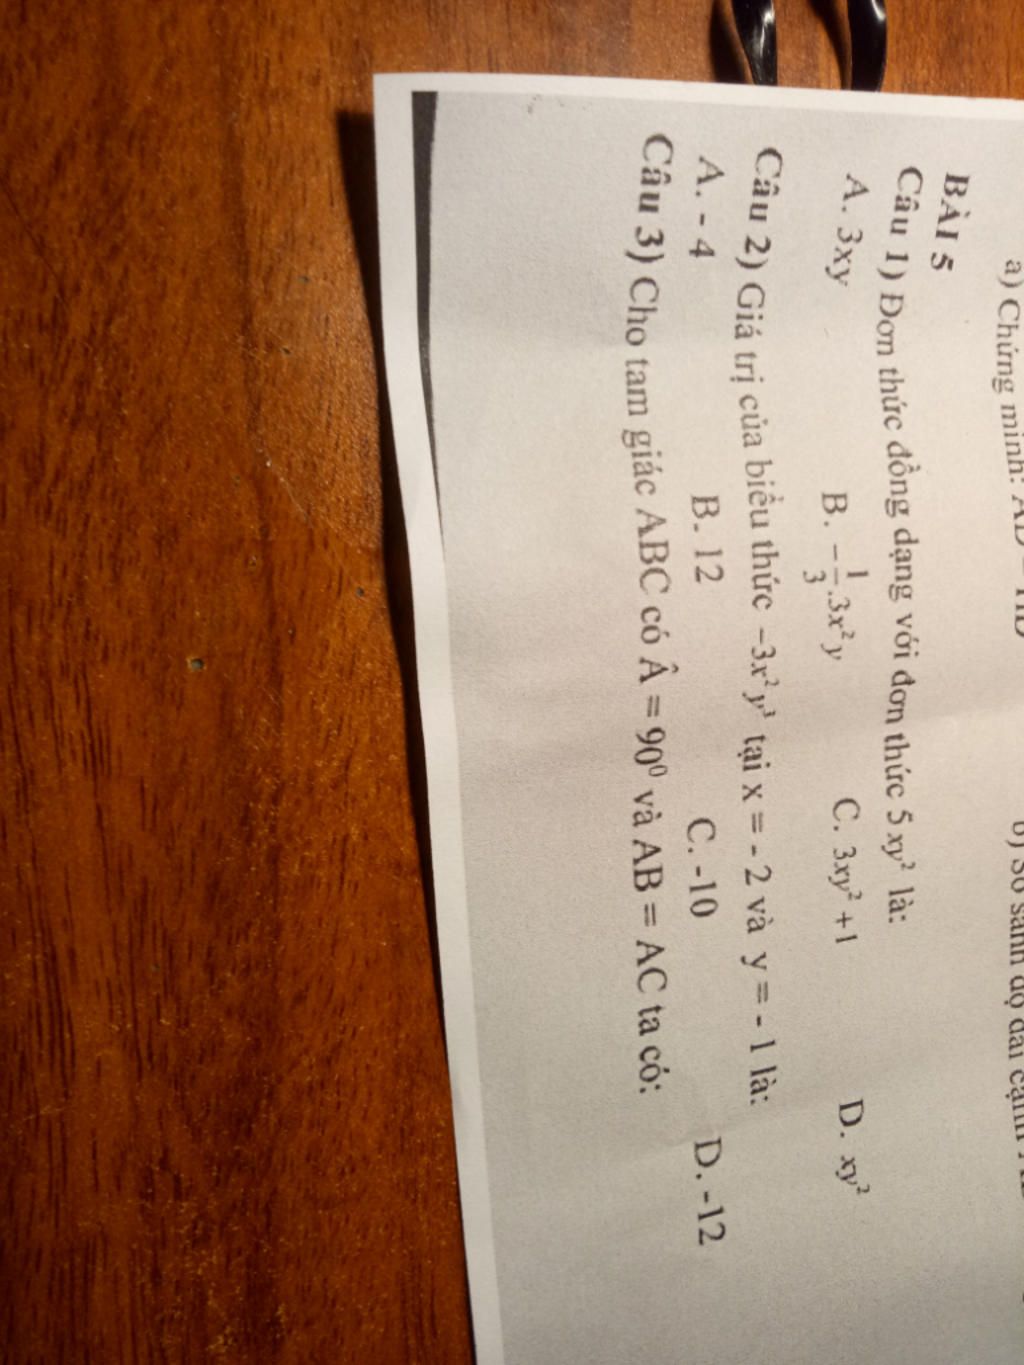 a) Chứng minh: AD = HD b) So sánh độ dài cạnh
BÀI 5
Câu 1) Đơn thức đồng dạng với đơn thức 5 xy² là:
A. 3xy B. −1/3.3x²y C. 3xy² +1 D. xy²
Câu 2) Giá trị của biểu thức −3x²y³ tại x = - 2 và y = - 1 là:
A. - 4 B. 12 C. -10 D. -12
Câu 3) Cho tam giác ABC có Â = 90⁰ và AB = AC ta có: